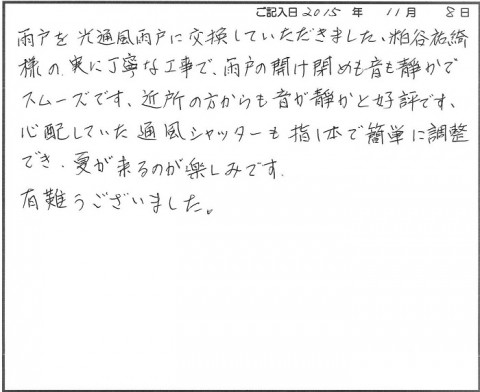 ご記入日 2015 年 11 月 8 日
雨戸を光通風雨戸に交換していただきました、粕谷祐綺
様の実に丁寧な工事で、雨戸の開け閉めも音も静かで
スムーズです、近所の方からも音が静かと好評です、
心配していた通風シャッターも指1本で簡単に調整
でき、夏が来るのが楽しみです.
有難うございました。